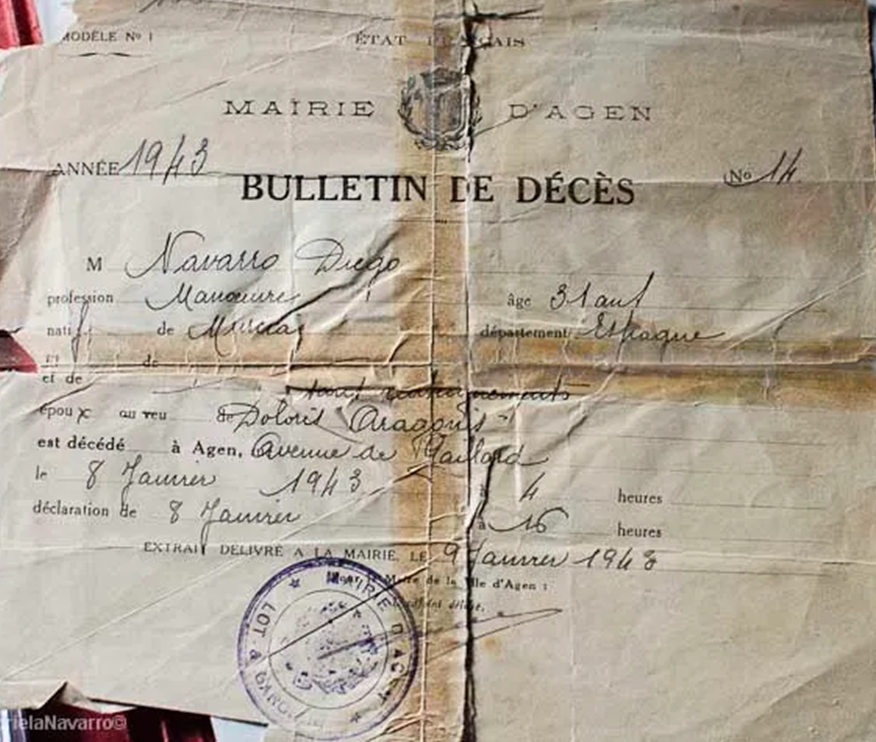 MODÈLE No 1
ÉTAT FRANÇAIS
MAIRIE D'AGEN
ANNÉE 1943
No 14
BULLETIN DE DÉCÈS
M Navarro Diego
profession Manœuvre âge 31 ans
natif de Murcia département Espagne
et de
et de
sans renseignements
époux ou veu de Doloris Aragonis
est décédé à Agen, Avenue de Gaillard
le 8 Janvier 1943 à 4 heures
déclaration de 8 Janvier à 16 heures
EXTRAIT DÉLIVRÉ A LA MAIRIE, LE 9 Janvier 1943
Maire de la Ville d'Agen :
MAIRIE D'AGEN
LOT &
rielaNavarro©